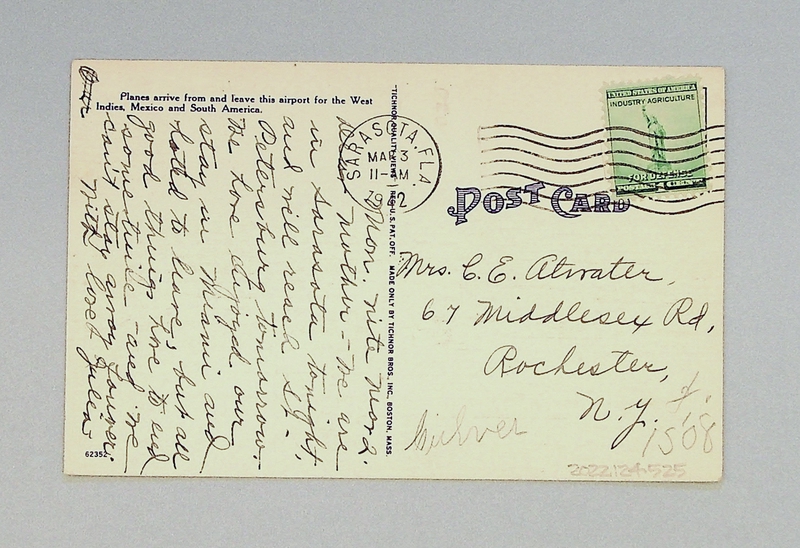 Planes arrive from and leave this airport for the West
Indies, Mexico and South America.
Mon. nite Mar 2.
Dear Mother - We are
in Sarasota tonight,
and will reach St.
Petersburg tomorrow.
We have enjoyed our
stay in Miami and
hated to leave, but all
good things have to end
sometime - and we
can't stay away forever.
With love,
62352
TICHNOR QUALITY VIEWS REG. U.S. PAT. OFF. MADE ONLY BY TICHNOR BROS., INC., BOSTON, MASS.
SARASOTA, FLA.
MAR 3
11 - M
1942
UNITED STATES OF AMERICA
INDUSTRY AGRICULTURE
FOR DEFENSE
POSTAGE 1 CENT
POST CARD
Mrs. C. E. Atwater,
67 Middlesex Rd,
Rochester,
N.Y.
1508
2022.124.525